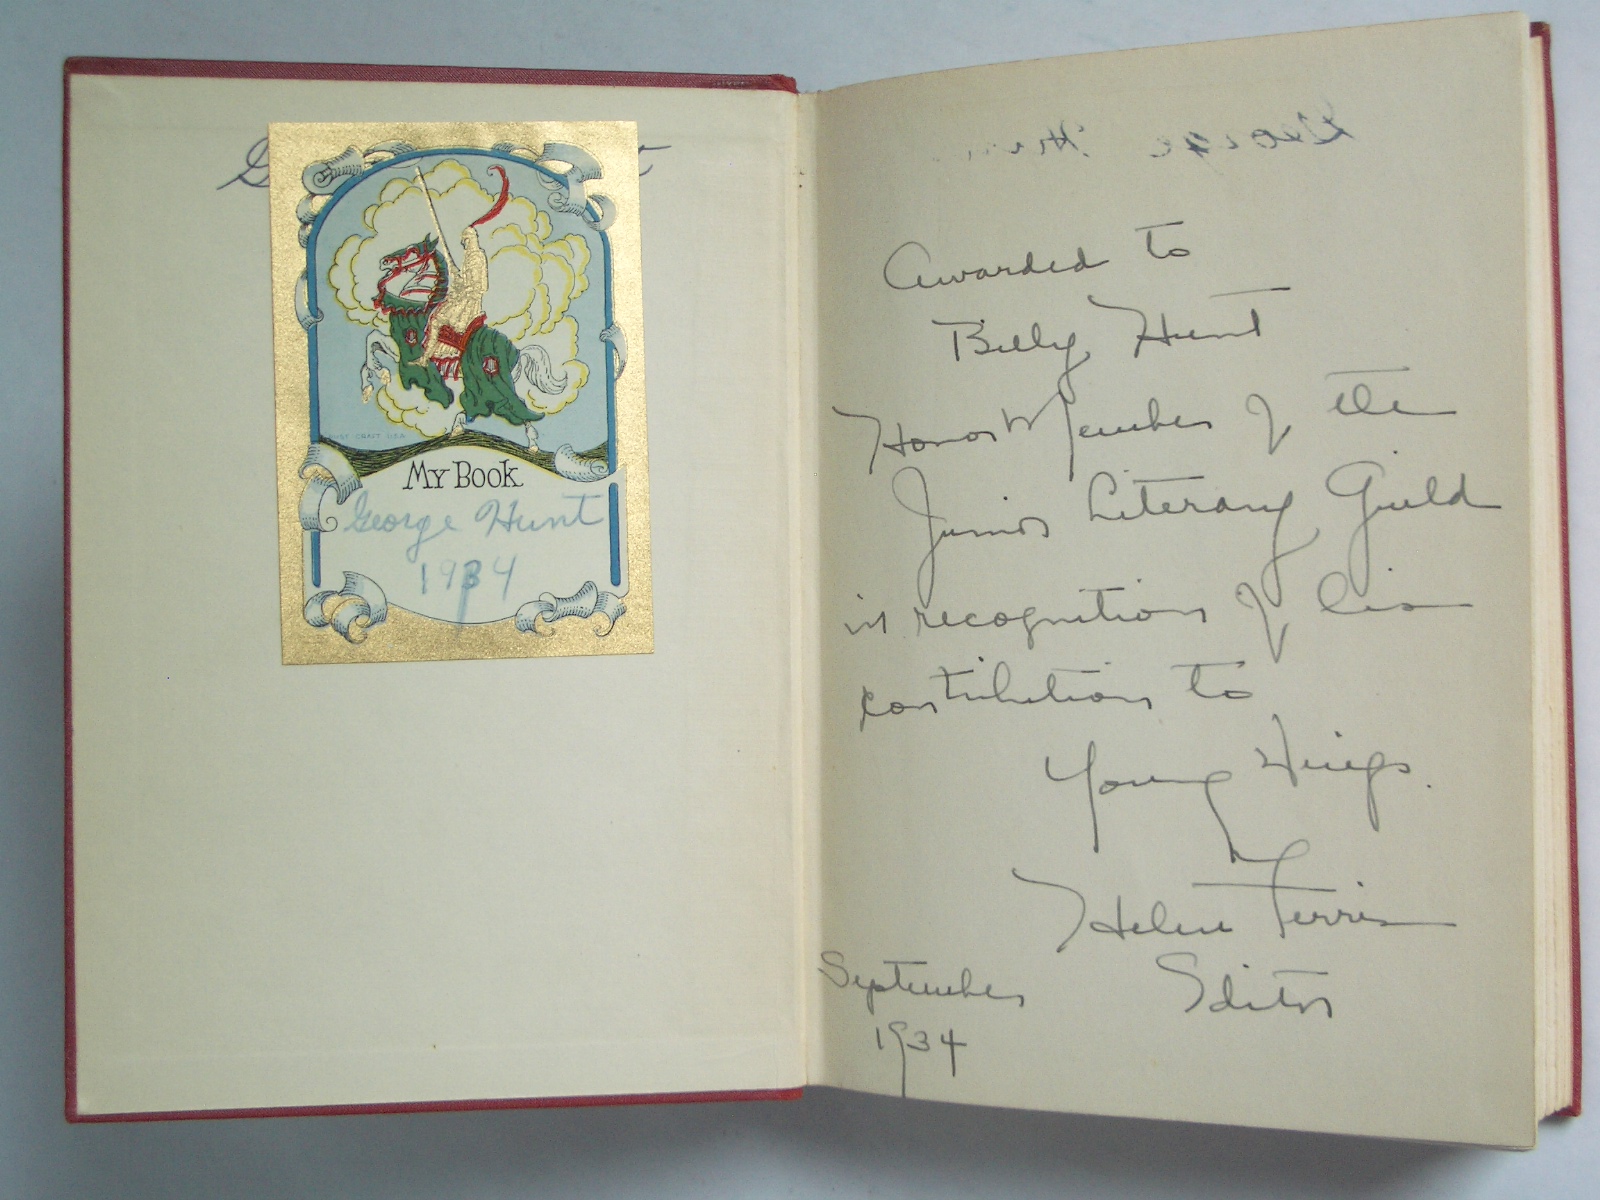 My Book
George Hunt
1934
George Hun
Awarded to
Billy Hunt
Honor Member of the
Junior Literary Guild
in recognition of his
contributions to
Young Wings.
Helen Ferris
Editor
September
1934